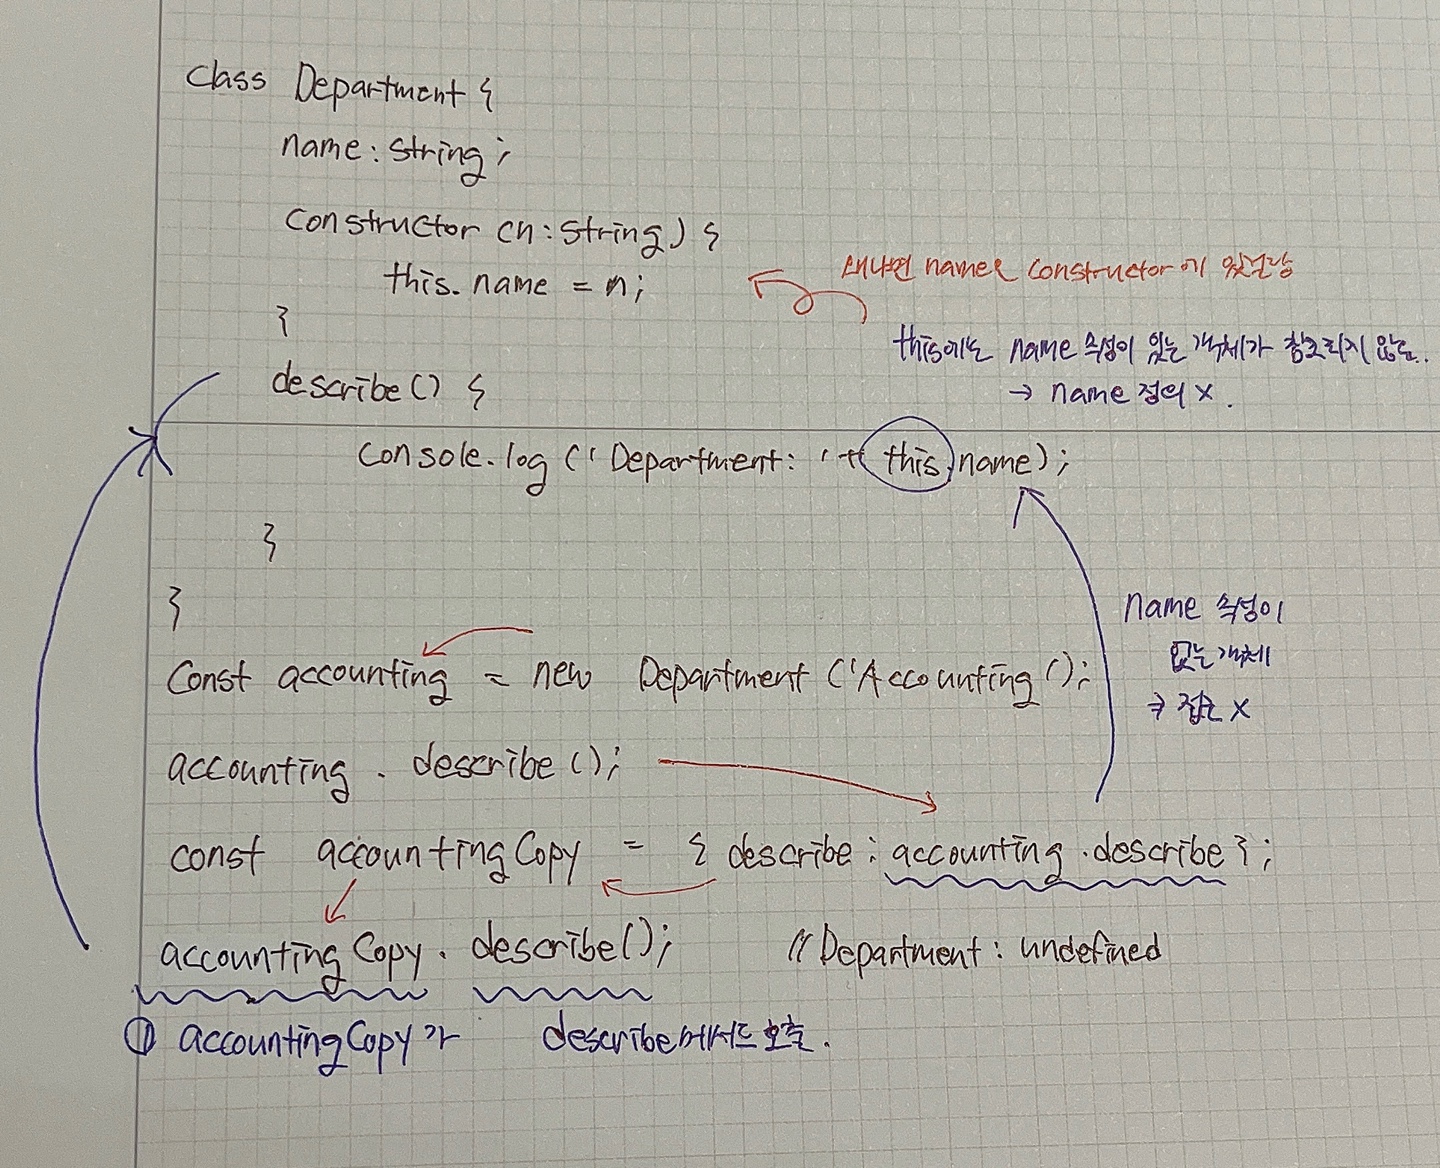 class Department {
name : string ;
constructor (n : string) {
this. name = n;
왜냐면 name은 constructor에 있걸랑
}
this에는 name 속성이 있는 객체가 참조되지 않음..
→ name 정의 x .
describe () {
console.log (' Department: ' + this.name);
}
}
name 속성이
없는 객체
⇒ 접근 X
Const accounting = new Department ('Accounting');
accounting . describe ();
const accountingCopy = { describe : accounting .describe } ;
accountingCopy . describe(); // Department : undefined
① accountingCopy가 describe메서드 호출 .